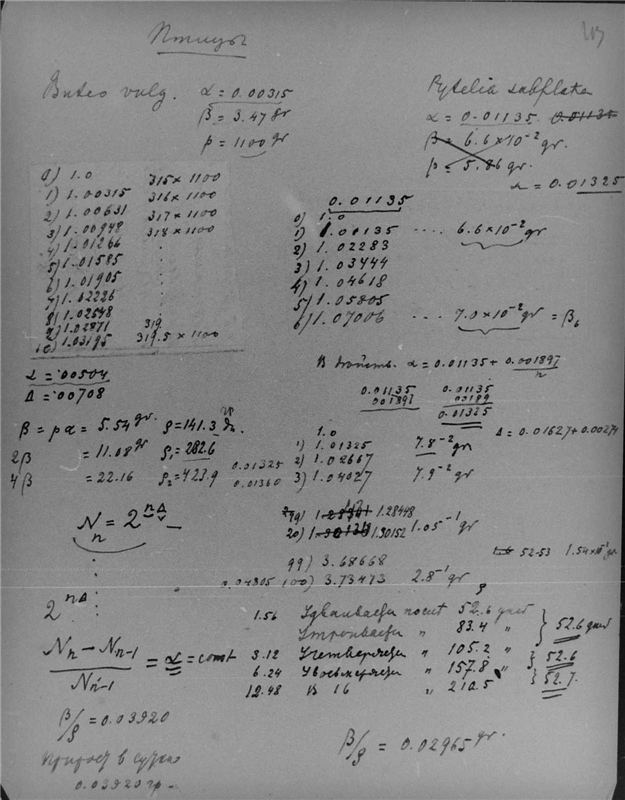 Птицы
Buteo vulg. α = 0.00315
β = 3.478 gr
p = 1100 gr
Pytelia subflava
α = 0.01135 0.01135
β = 6.6×10⁻² gr.
p = 5.86 gr.
α = 0.01325
0) 1.0 315 × 1100
1) 1.00315 316 × 1100
2) 1.00631 317 × 1100
3) 1.00948 318 × 1100
4) 1.01266
5) 1.01585
6) 1.01905
7) 1.02226
8) 1.02548
9) 1.02871 319
10) 1.03195 319.5 × 1100
α = ·00504
Δ = ·00708
0.01135
0) 1.0
1) 1.00135 .... 6.6×10⁻² gr
2) 1.02283
3) 1.03444
4) 1.04618
5) 1.05805
6) 1.07006 .... 7.0×10⁻² gr = β₆
В α = 0.01135 + 0.001891/n
0.01135 0.01135
001891 00189
0.01325
β = pα = 5.54 gr. ρ = 141.3
2β = 11.08 gr ρ₁ = 282.6
4β = 22.16 ρ₂ = 423.9
0.01325
0.01360
1.0
1) 1.01325 7.8⁻² gr
2) 1.02667
3) 1.04027 7.9⁻² gr
Δ = 0.01627 + 0.00274
Nₙ = 2ⁿᐃ
19) 1.28448
20) 1.30152 1.05⁻¹ gr
99) 3.68668
0.04305 100) 3.73473 2.8⁻¹ gr
52-53 1.54×10⁻¹ gr
2ⁿᐃ
(Nₙ − Nₙ₋₁)/Nₙ₋₁ = α = const
1.56 Удваивается после 52.6 дней
Утраивается " 83.4 " } 52.6 дней
3.12 Учетверяется " 105.2 " } 52.6
6.24 Увосьмеряется " 157.8 "
12.48 В 16 " 210.5 " } 52.7.
β/ρ = 0.03920
β/ρ = 0.02965 gr.
Прирост в сутки
0.03920 гр.